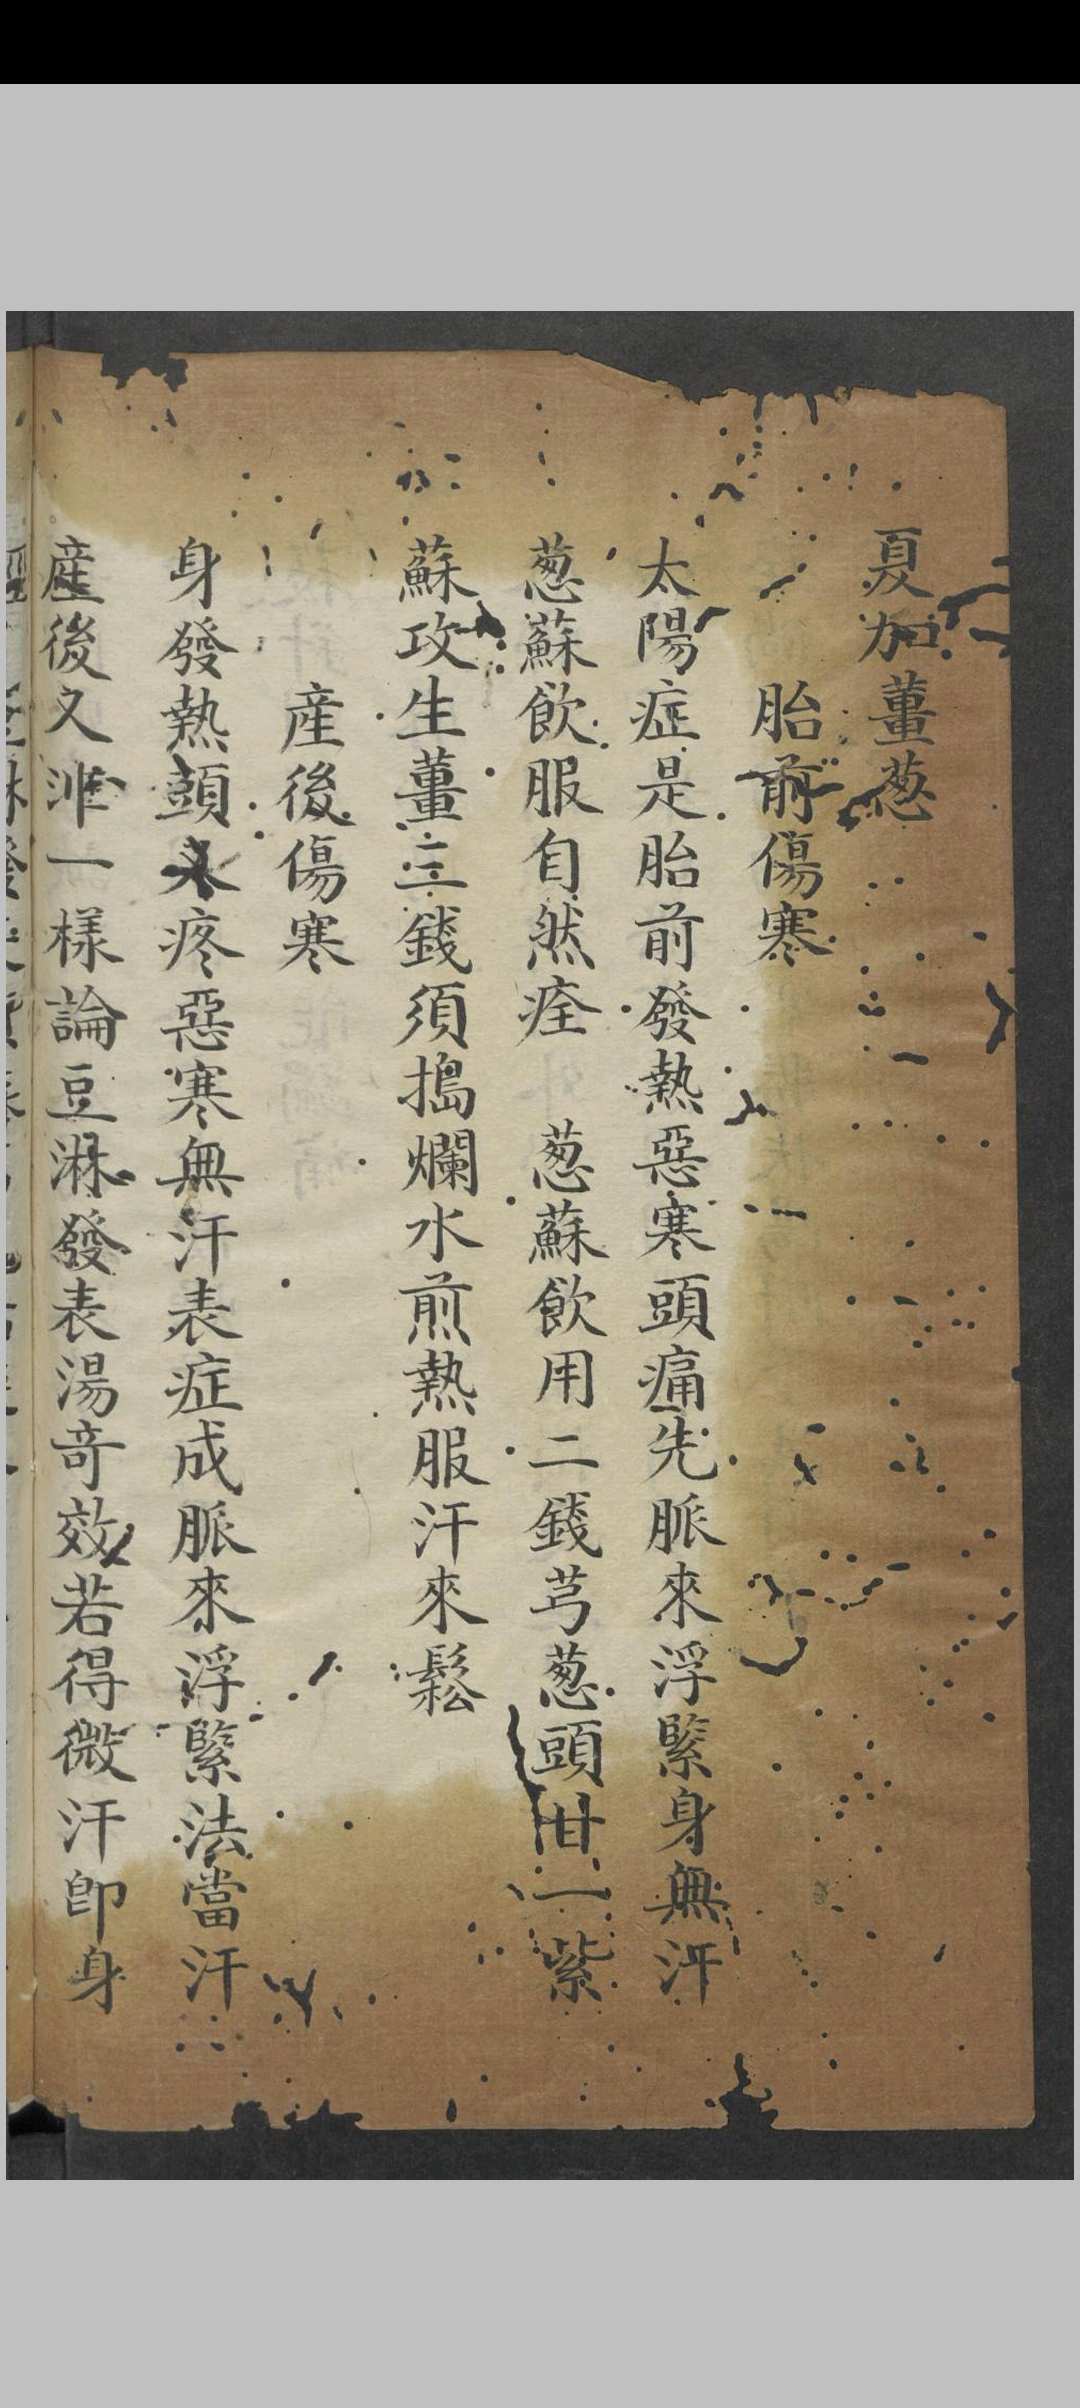 夏加薑葱
胎前傷寒
太陽症是胎前發熱惡寒頭痛先脈來浮緊身無汗
葱蘇飲服自然痊 葱蘇飲用二錢芎葱頭甘一紫
蘇攻生薑三錢須搗爛水煎熱服汗來鬆
產後傷寒
身發熱頭又疼惡寒無汗表症成脈來浮緊法當汗
產後又非一樣論豆淋發表湯奇效若得微汗卽身